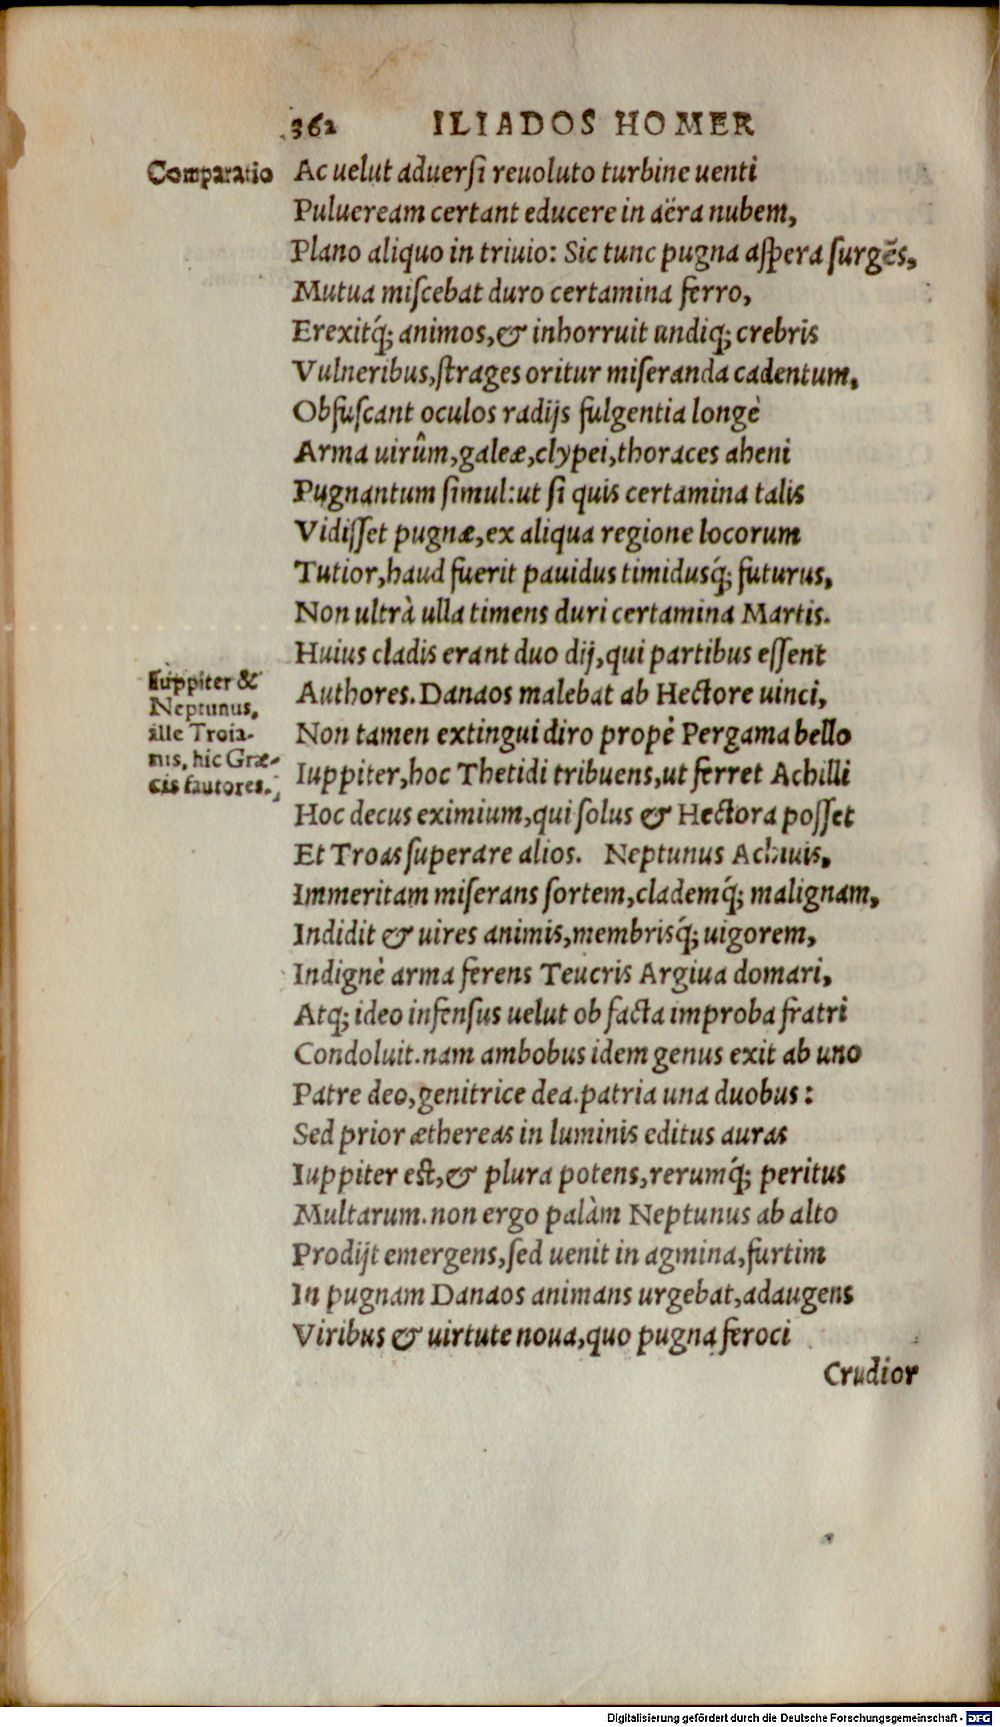 362 ILIADOS HOMER
Comparatio
Ac uelut aduersi reuoluto turbine uenti
Pulueream certant educere in aëra nubem,
Plano aliquo in triuio: Sic tunc pugna aſpera ſurgẽs,
Mutua miſcebat duro certamina ferro,
Erexitq́; animos, & inhorruit undiq; crebris
Vulneribus, ſtrages oritur miſeranda cadentum.
Obfuſcant oculos radijs fulgentia longè
Arma uirûm, galeæ, clypei, thoraces aheni
Pugnantum ſimul: ut ſi quis certamina talis
Vidiſſet pugnæ, ex aliqua regione locorum
Tutior, haud fuerit pauidus timidusq́; futurus,
Non ultrà ulla timens duri certamina Martis.
Huius cladis erant duo dij, qui partibus eſſent
Iuppiter &
Neptunus,
ille Troia-
nis, hic Græ-
cis fautores.
Authores. Danaos malebat ab Hectore uinci,
Non tamen extingui diro propè Pergama bello
Iuppiter, hoc Thetidi tribuens, ut ferret Achilli
Hoc decus eximium, qui ſolus & Hectora poſſet
Et Troas ſuperare alios. Neptunus Achiuis,
Immeritam miſerans ſortem, clademq́; malignam,
Indidit & uires animis, membrisq́; uigorem,
Indignè arma ferens Teucris Argiua domari,
Atq; ideo infenſus uelut ob facta improba fratri
Condoluit. nam ambobus idem genus exit ab uno
Patre deo, genitrice dea. patria una duobus:
Sed prior æthereas in luminis editus auras
Iuppiter eſt, & plura potens, rerumq́; peritus
Multarum. non ergo palàm Neptunus ab alto
Prodijt emergens, ſed uenit in agmina, furtim
In pugnam Danaos animans urgebat, adaugens
Viribus & uirtute noua, quo pugna feroci
Crudior
Digitalisierung gefördert durch die Deutsche Forschungsgemeinschaft - DFG